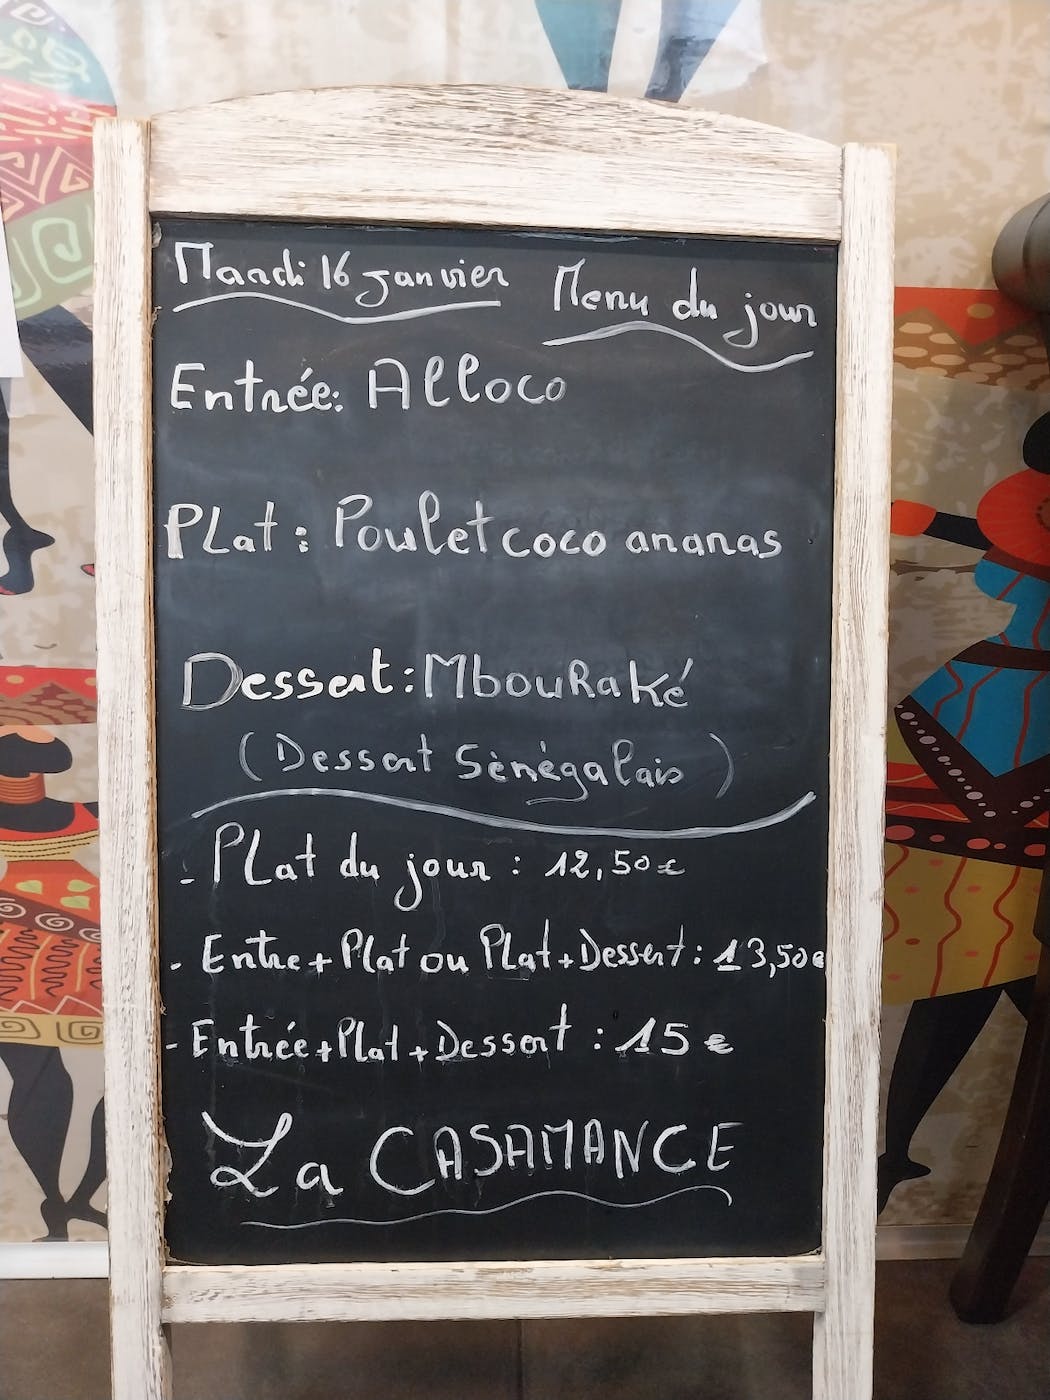 Mardi 16 janvier
Menu du jour
Entrée: Alloco
Plat : Poulet coco ananas
Dessert : MbouRaké
(Dessert Sénégalais)
- Plat du jour : 12,50€
- Entre + Plat ou Plat + Dessert : 13,50€
- Entrée + Plat + Dessert : 15€
La CASAMANCE